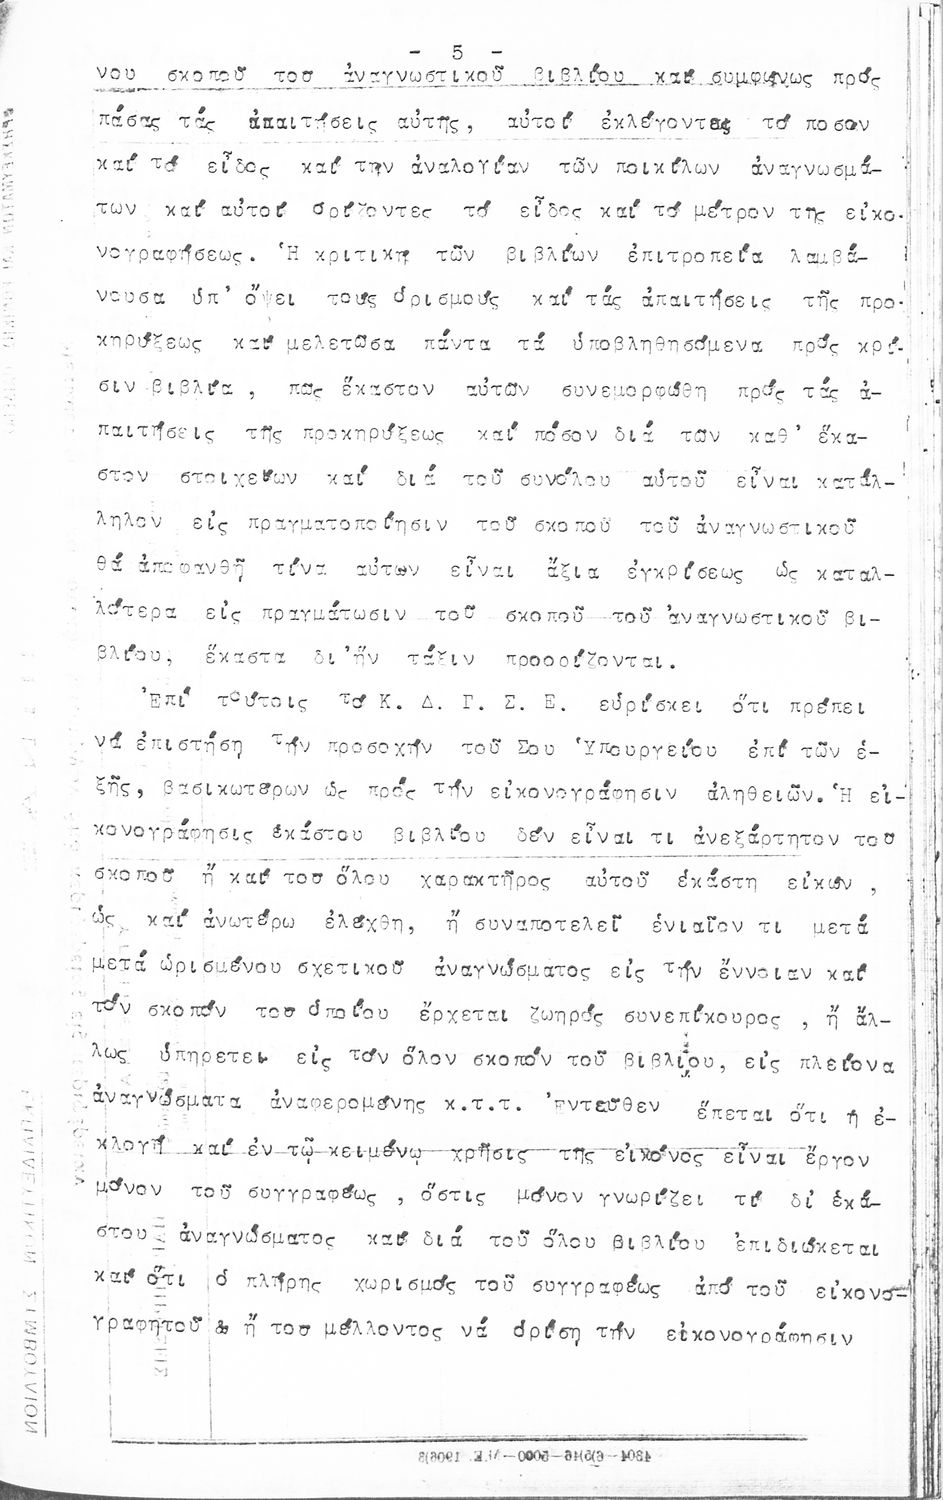 - 5 -
νου σκοποῦ τοῦ ἀναγνωστικοῦ βιβλίου καί συμφώνως πρός
πάσας τάς ἀπαιτήσεις αὐτῆς, αὐτοί ἐκλέγοντες τό ποσόν
καί τό εἶδος καί τήν ἀναλογίαν τῶν ποικίλων ἀναγνωσμά-
των καί αὐτοί ὁρίζοντες τό εἶδος καί τό μέτρον τῆς εἰκο-
νογραφήσεως. Ἡ κριτική τῶν βιβλίων ἐπιτροπεία λαμβά-
νουσα ὑπ' ὄψει τούς ὁρισμούς καί τάς ἀπαιτήσεις τῆς προ-
κηρύξεως καί μελετῶσα πάντα τά ὑποβληθησόμενα πρός κρί-
σιν βιβλία, πῶς ἕκαστον αὐτῶν συνεμορφώθη πρός τάς ἀ-
παιτήσεις τῆς προκηρύξεως καί πόσον διά τῶν καθ' ἕκα-
στον στοιχείων καί διά τοῦ συνόλου αὐτοῦ εἶναι κατάλ-
ληλον εἰς πραγματοποίησιν τοῦ σκοποῦ τοῦ ἀναγνωστικοῦ
θά ἀποφανθῇ τίνα αὐτῶν εἶναι ἄξια ἐγκρίσεως ὡς καταλ-
λότερα εἰς πραγμάτωσιν τοῦ σκοποῦ τοῦ ἀναγνωστικοῦ βι-
βλίου, ἕκαστα δι'ἥν τάξιν προορίζονται.
Ἐπί τούτοις τό Κ. Δ. Γ. Σ. Ε. εὑρίσκει ὅτι πρέπει
νά ἐπιστήσῃ τήν προσοχήν τοῦ Σου Ὑπουργείου ἐπί τῶν ἑ-
ξῆς, βασικωτέρων ὡς πρός τήν εἰκονογράφησιν ἀληθειῶν. Ἡ εἰ-
κονογράφησις ἑκάστου βιβλίου δέν εἶναι τι ἀνεξάρτητον τοῦ
σκοποῦ ἤ καί τοῦ ὅλου χαρακτῆρος αὐτοῦ ἑκάστη εἰκών,
ὡς καί ἀνωτέρω ἐλέχθη, ἤ συναποτελεῖ ἑνιαῖον τι μετά
μετά ὡρισμένου σχετικοῦ ἀναγνώσματος εἰς τήν ἔννοιαν καί
τόν σκοπόν τοῦ ὁποίου ἔρχεται ζωηρός συνεπίκουρος, ἤ ἄλ-
λως ὑπηρετεῖ εἰς τόν ὅλον σκοπόν τοῦ βιβλίου, εἰς πλείονα
ἀναγνώσματα ἀναφερομένης κ.τ.τ. Ἐντεῦθεν ἕπεται ὅτι ἡ ἐ-
κλογή καί ἐν τῷ κειμένῳ χρῆσις τῆς εἰκόνος εἶναι ἔργον
μόνον τοῦ συγγραφέως, ὅστις μόνον γνωρίζει τί δι' ἑκά-
στου ἀναγνώσματος καί διά τοῦ ὅλου βιβλίου ἐπιδιώκεται
καί ὅτι ὁ πλήρης χωρισμός τοῦ συγγραφέως ἀπό τοῦ εἰκονο-
γραφητοῦ ἤ τοῦ μέλλοντος νά ὁρίσῃ τήν εἰκονογράφησιν